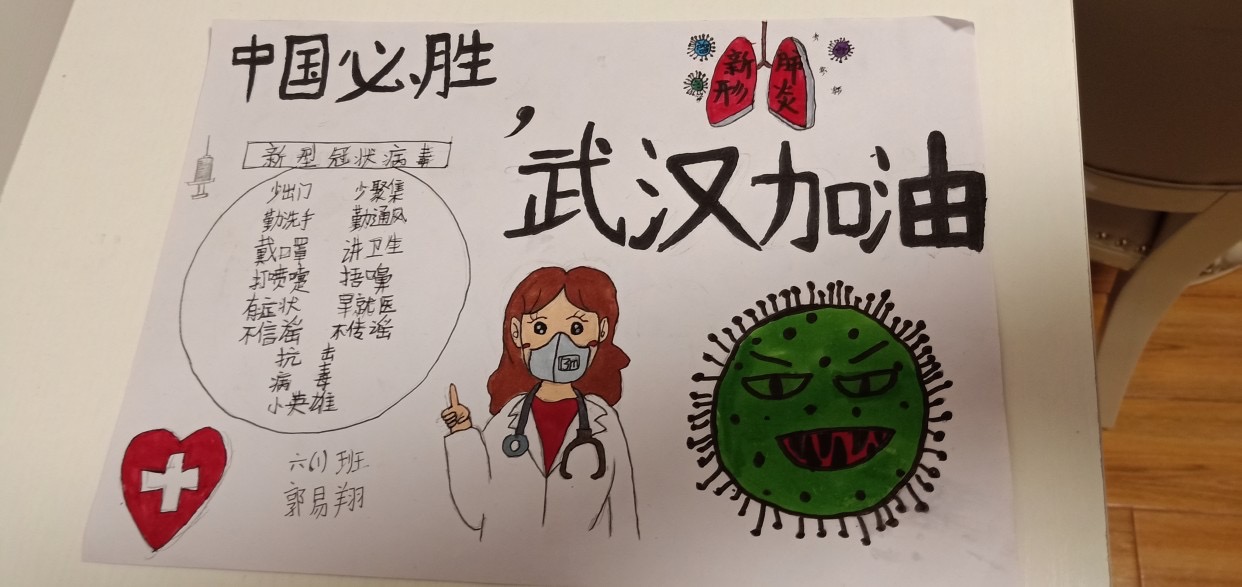 中国必胜
，武汉加油
新形
肺炎
新型冠状病毒
少出门 少聚集
勤洗手 勤通风
戴口罩 讲卫生
打喷嚏 捂嘴鼻
有症状 早就医
不信谣 不传谣
抗击
病毒
小英雄
3m
六(1)班
郭易翔